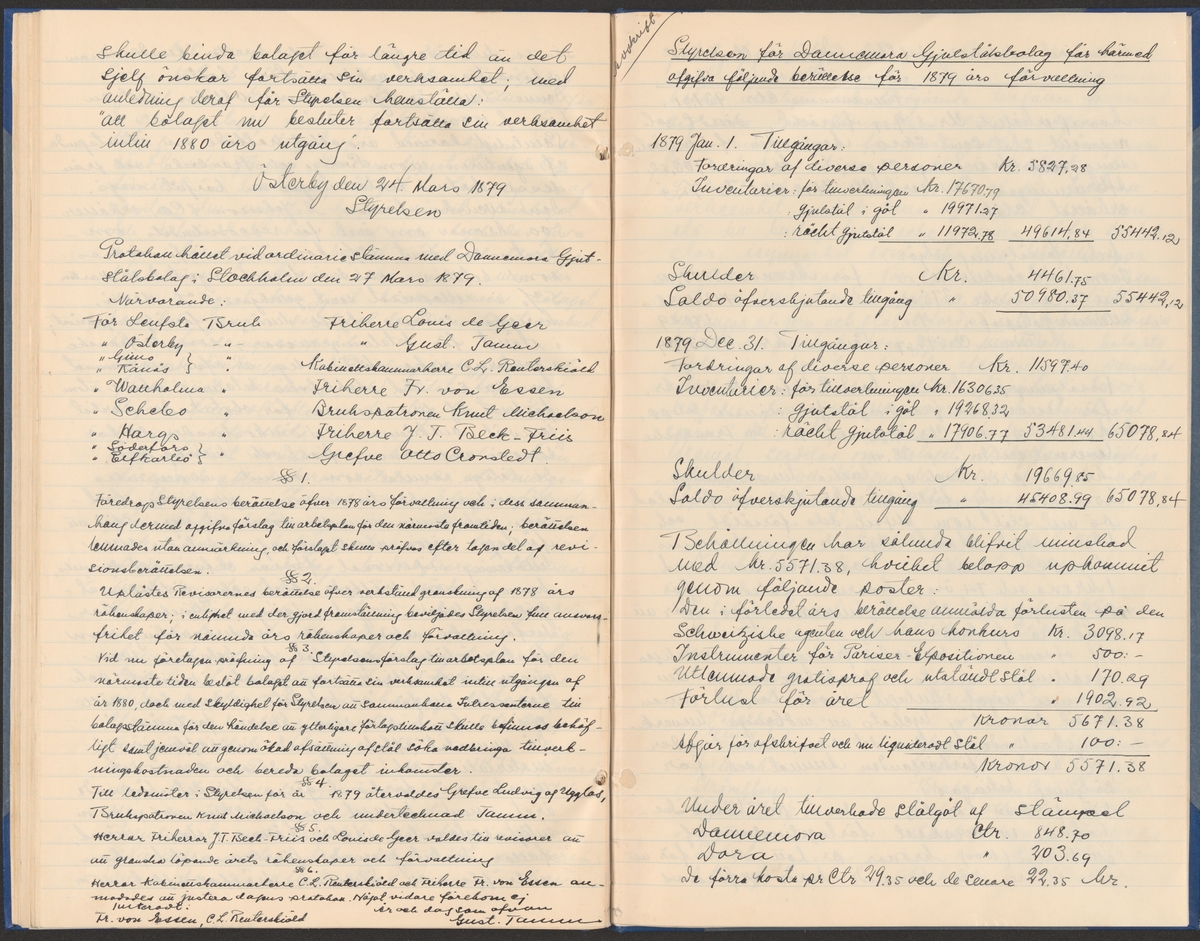 skulle binda bolaget för längre tid än det
sjelf önskar fortsätta sin verksamhet; med
anledning deraf får Styrelsen hemställa:
"att bolaget nu besluter fortsätta sin verksamhet
intill 1880 års utgång".
Österby den 24 Mars 1879
Styrelsen
Protokoll hållet vid ordinarie stämma med Dannemora Gjut-
stålsbolag i Stockholm den 27 Mars 1879.
Närvarande:
För Leufsta Bruk Friherre Louis de Geer
" Österby -"- " Gust. Tamm
" Gimo } "
" Ränäs } Kabinettskammarherre C.L. Reuterskiöld
" Wattholma " Friherre Fr. von Essen
" Schebo " Brukspatronen Knut Michaelson
" Hargs " Friherre J. T. Beck-Friis
" Söderfors } "
" Elfkarleö } Grefve Otto Cronstedt.
§ 1.
Föredrogs Styrelsens berättelse öfver 1878 års förvaltning och i dess samman-
hang dermed afgifna förslag till arbetsplan för den närmaste framtiden; berättelsen
lemnades utan anmärkning, och förslaget skulle pröfvas efter tagen del af revi-
sionsberättelsen.
§ 2.
Upplästes Revisorernes berättelse öfver verkställd granskning af 1878 års
räkenskaper; i enlighet med der gjord framställning beviljades Styrelsen full ansvars-
frihet för nämnda års räkenskaper och förvaltning.
§ 3.
Vid nu företagen pröfning af Styrelsens förslag till arbetsplan för den
närmaste tiden beslöt bolaget att fortsätta sin verksamhet intill utgången af
år 1880, dock med skyldighet för Styrelsen att sammankalla Intressenterne till
bolagsstämma för den händelse att ytterligare förlagstillskott skulle befinnas behöf-
ligt samt jemväl att genom ökad afsättning af stål söka nedbringa tillverk-
ningskostnaden och bereda bolaget inkomster.
§ 4.
Till ledamöter i Styrelsen för år 1879 återvaldes Grefve Ludvig af Ugglas,
Brukspatronen Knut Michaelson och undertecknad Tamm.
§ 5.
Herrar Friherrar J.T. Beck-Friis och Louis de Geer valdes till revisorer att
att granska löpande årets räkenskaper och förvaltning
§ 6.
Herrar Kabinettskammarherre C.L. Reuterskiöld och Friherre Fr. von Essen an-
modades att justera dagens protokoll. Något vidare förekom ej
Justeradt: År och dag som ofvan
Fr. von Essen, C.L. Reuterskiöld Gust. Tamm
Styrelsen för Dannemora Gjutstålsbolag får härmed
afgifva följande berättelse för 1879 års förvaltning
1879 Jan. 1. Tillgångar:
Fordringar af diverse personer Kr. 5827.28
Inventarier: för tillverkningen Kr. 17670.79
: gjutstål i göt " 19971.27
: räckt gjutstål " 11972.78 49614,84 55442.12
Skulder Kr. 4461.75
Saldo öfverskjutande tillgång " 50980.37 55442,12
1879 Dec. 31. Tillgångar:
Fordringar af diverse personer Kr. 11597.40
Inventarier: för tillverkningen Kr. 16306.35
: gjutstål i göt " 19268.32
: räckt gjutstål " 17906.77 53481.44 65078,84
Skulder Kr. 19669,85
Saldo öfverskjutande tillgång " 45408.99 65078,84
Behållningen har sålunda blifvit minskad
med Kr. 5571.38, hvilket belopp uppkommit
genom följande poster:
Den i förledet års berättelse anmälda förlusten på den
Schweiziske agenten och hans konkurs Kr. 3098.17
Instrumenter för Pariser-Expositionen " 500:-
Utlemnade gratisprof och utståndt stål " 170.29
Förlust för året " 1902.92
Kronor 5671.38
Afgår för afskrifvet och nu liquideradt stål " 100:-
Kronor 5571.38
Under året tillverkade stålgöt af stämpel
Dannemora Ctr. 848.70
Dora " 203.69
De förra kosta pr Ctr 29.35 och de senare 22.35 Kr.